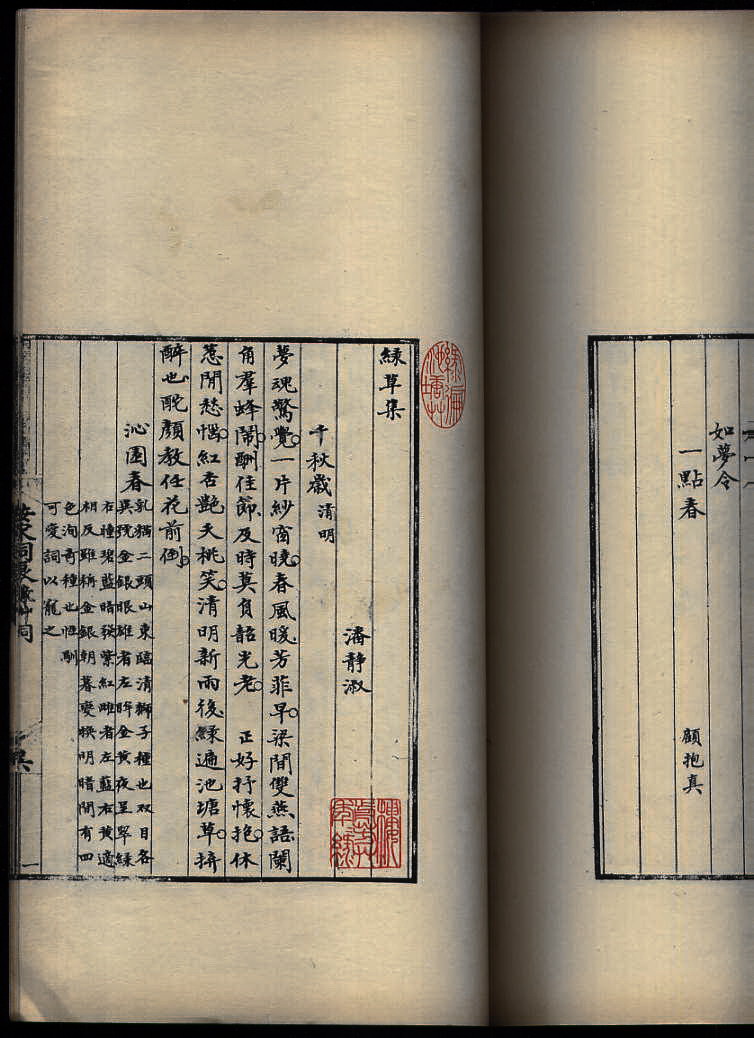 如夢令
一點春　顧抱真
綠遍池塘草
綠草集
潘靜淑
千秋歲清明
夢魂驚覺一片紗窗曉春風暖芳菲早梁間雙燕語闌
角羣蜂鬧酬佳節及時莫負韶光老　正好抒懷抱休
惹閒愁惱紅杏豔夭桃笑清明新雨後綠遍池塘草拚
醉也酡顏教任花前倒
沁園春
乳貓二頭山東臨清獅子種也双目各
異號金銀眼雄者左眸金黃夜呈翠綠
右瞳碧藍暗發紫紅雌者左藍右黃適
相反雖稱金銀朝暮變換明暗間有四
色洵奇種也性馴
可愛詞以寵之
一